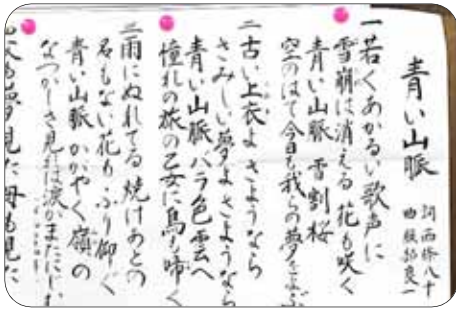 青い山脈
詞 西條八十
曲 服部良一
一 若くあかるい歌声に
雪崩は消える 花も咲く
青い山脈 雪割桜
空のはて今日も我らの夢をよぶ
二 古い上衣よさようなら
さみしい夢よさようなら
青い山脈バラ色雲へ
憧れの旅の乙女に鳥も啼く
三 雨にぬれてる 焼けあとの
名もない花もふり仰ぐ
青い山脈 かがやく嶺の
なつかしさ見れば涙がまたにじむ
夢見た 母も見た